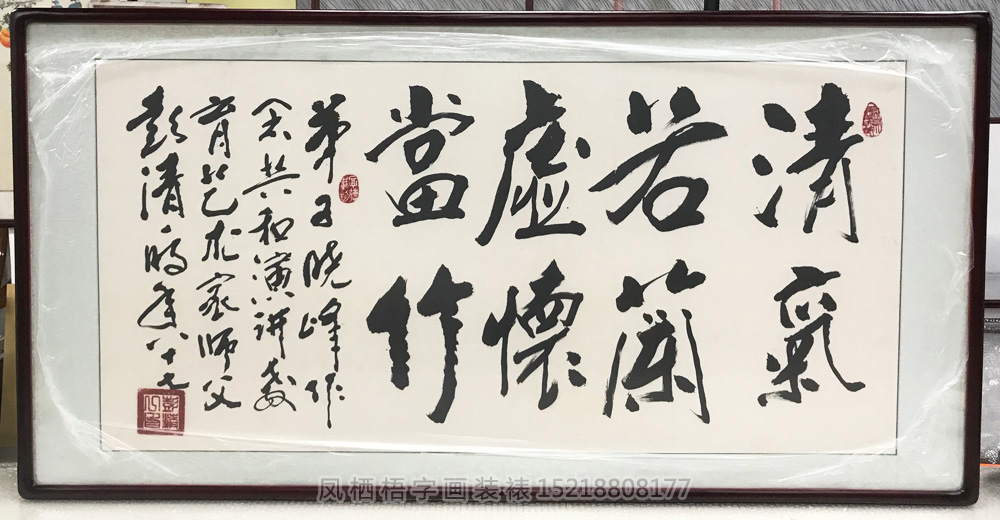 清氣
若蘭
虛懷
當竹
弟子晓峰作
余共和演讲教
育艺术家师父
彭清时年八十七
凤栖梧字画装裱15218808177